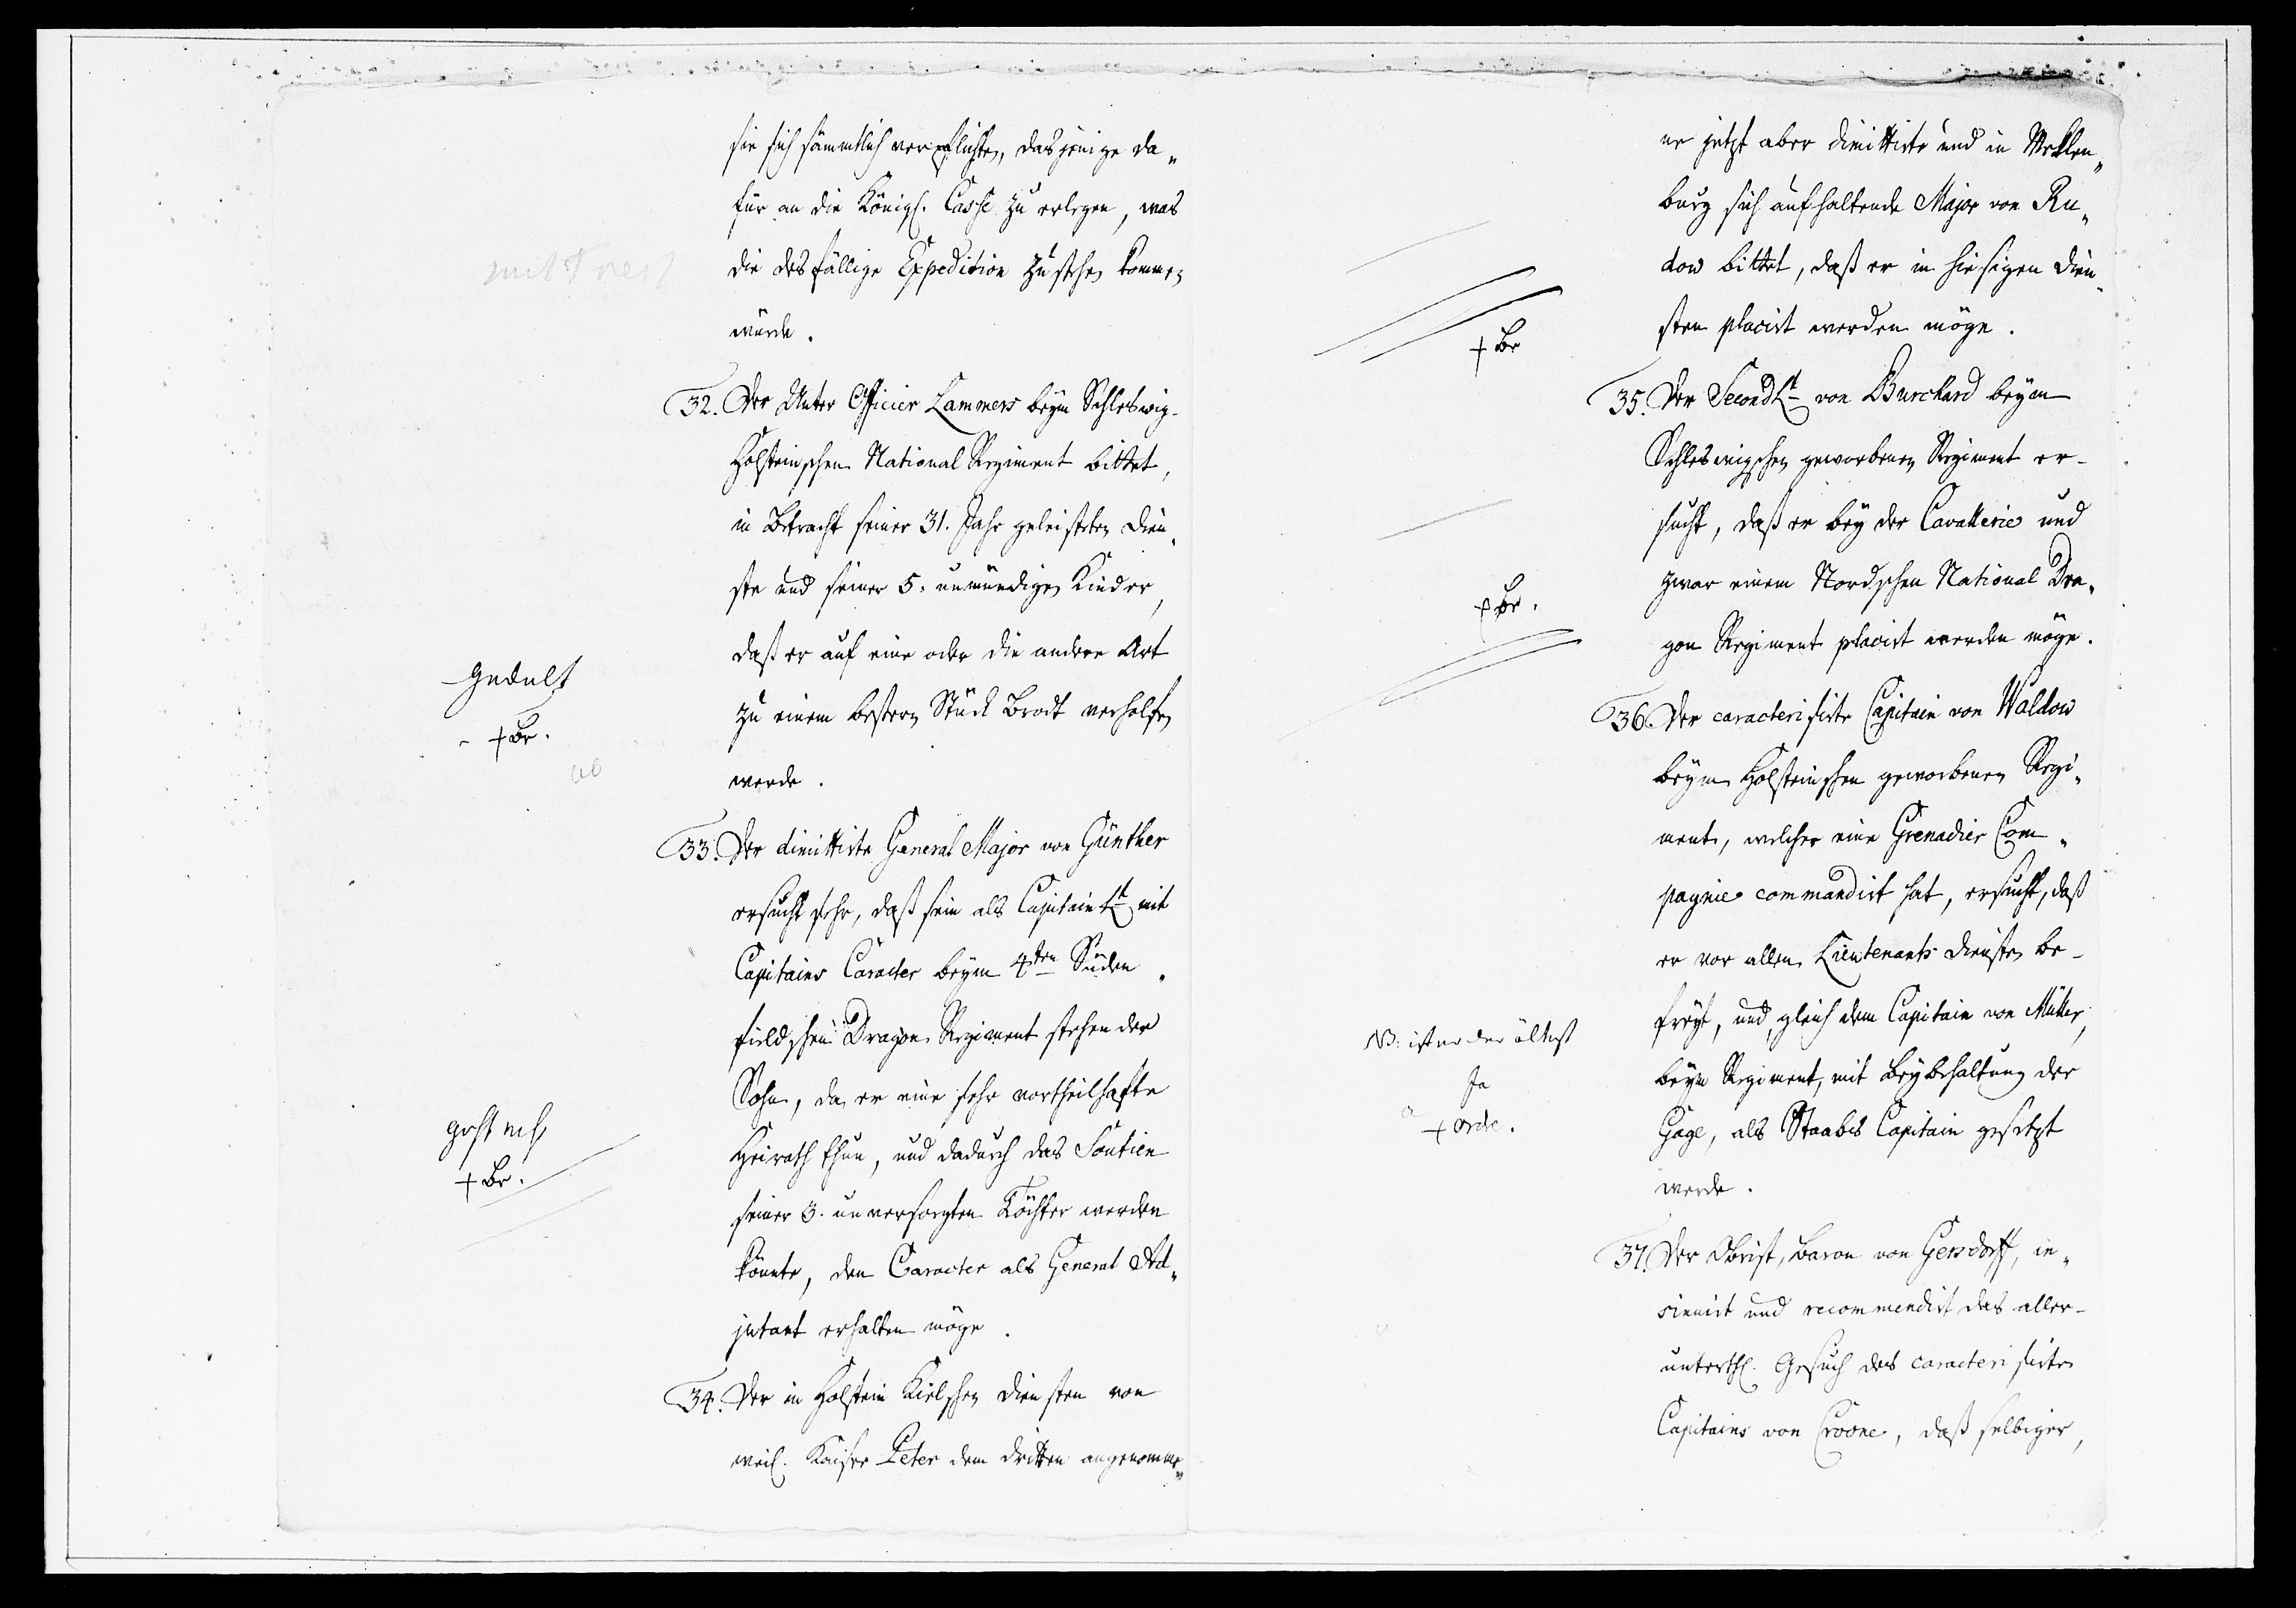 sie sich sämmtlich verpflichten, dasjenige da„
für an die Königl. Casse zu erlegen, was
die desfällige Expedition zu stehen kommen
würde.
32. Der Unter Officier Lammers beym Schleswig-
Holsteinschen National Regiment bittet,
in Betracht seiner 31. Jahr geleisteten Dien„
ste und seiner 5. unmündigen Kinder,
daß er auf eine oder die andere Art
zu einem bessern Stück Brodt verholfen
werde.
Gedult
+ Br.
33. Der dimittirte General Major von Günther
ersucht sehr, daß sein als Capitain Lt mit
Capitains Caracter beym 4ten Süden„
fieldschen Dragon Regiment stehender
Sohn, da er eine sehr vortheilhafte
Heirath thun, und dadurch das Soutien
seiner 3. unversorgten Töchter werden
könnte, den Caracter als General Ad„
jutant erhalten möge.
geht nicht
+ Br.
34. Der in Holstein Kielschen Diensten von
weil. Kaiser Peter dem dritten angenomme„
ne jetzt aber dimittirte und in Meklen„
burg sich aufhaltende Major von Ru„
dow bittet, daß er in hiesigen Dien„
sten placirt werden möge.
+ Br
35. Der Second Lt von Burchard beym
Schleswigschen geworbenen Regiment er-
sucht, daß er bey der Cavallerie und
zwar einem Nordschen National Dra„
gon Regiment placirt werden möge.
+ Br.
36. Der caracterisirte Capitain von Waldow
beym Holsteinschen geworbenen Regi„
ment, welcher eine Grenadier Com„
pagnie commandirt hat, ersucht, daß
er vor allen Lieutenants Diensten be-
freyt, und gleich dem Capitain von Müller,
beym Regiment, mit Beybehaltung der
Gage, als Staabs Capitain gesetzt
werde.
NB: ist er der ältest
Ja
+ Ordr.
37. Der Obrist, Baron von Gersdorff, in„
sinuirt und recommendirt das aller-
unterth. Gesuch des caracterisirten
Capitains von Croone, daß selbiger,